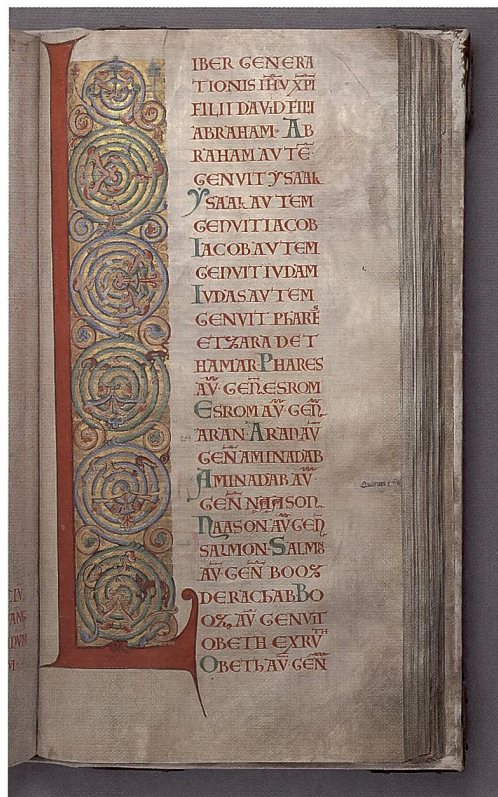 LIBER GENERA
TIONIS IHV XPI
FILII DAVID FILII
ABRAHAM· AB
RAHAM AVTĒ
GENVIT YSAAK
YSAAK AVTEM
GENVIT IACOB
IACOB AVTEM
GENVIT IVDAM
IVDAS AVTEM
GENVIT PHARĒ
ET ZARA DE T
HAMAR PHARES
AV̄ GEÑ ESROM
ESROM AV̄ GEÑ
ARAN· ARAN AV̄
GEÑ AMINADAB
AMINADAB AV̄
GEÑ NAASON·
NAASON AV̄ GEÑ
SALMON· SALMŌ
AV̄ GEÑ BOOZ
DE RACHAB BO
OZ, AV̄ GENVIT
OBETH EX RVTH
OBETH AV̄ GEÑ